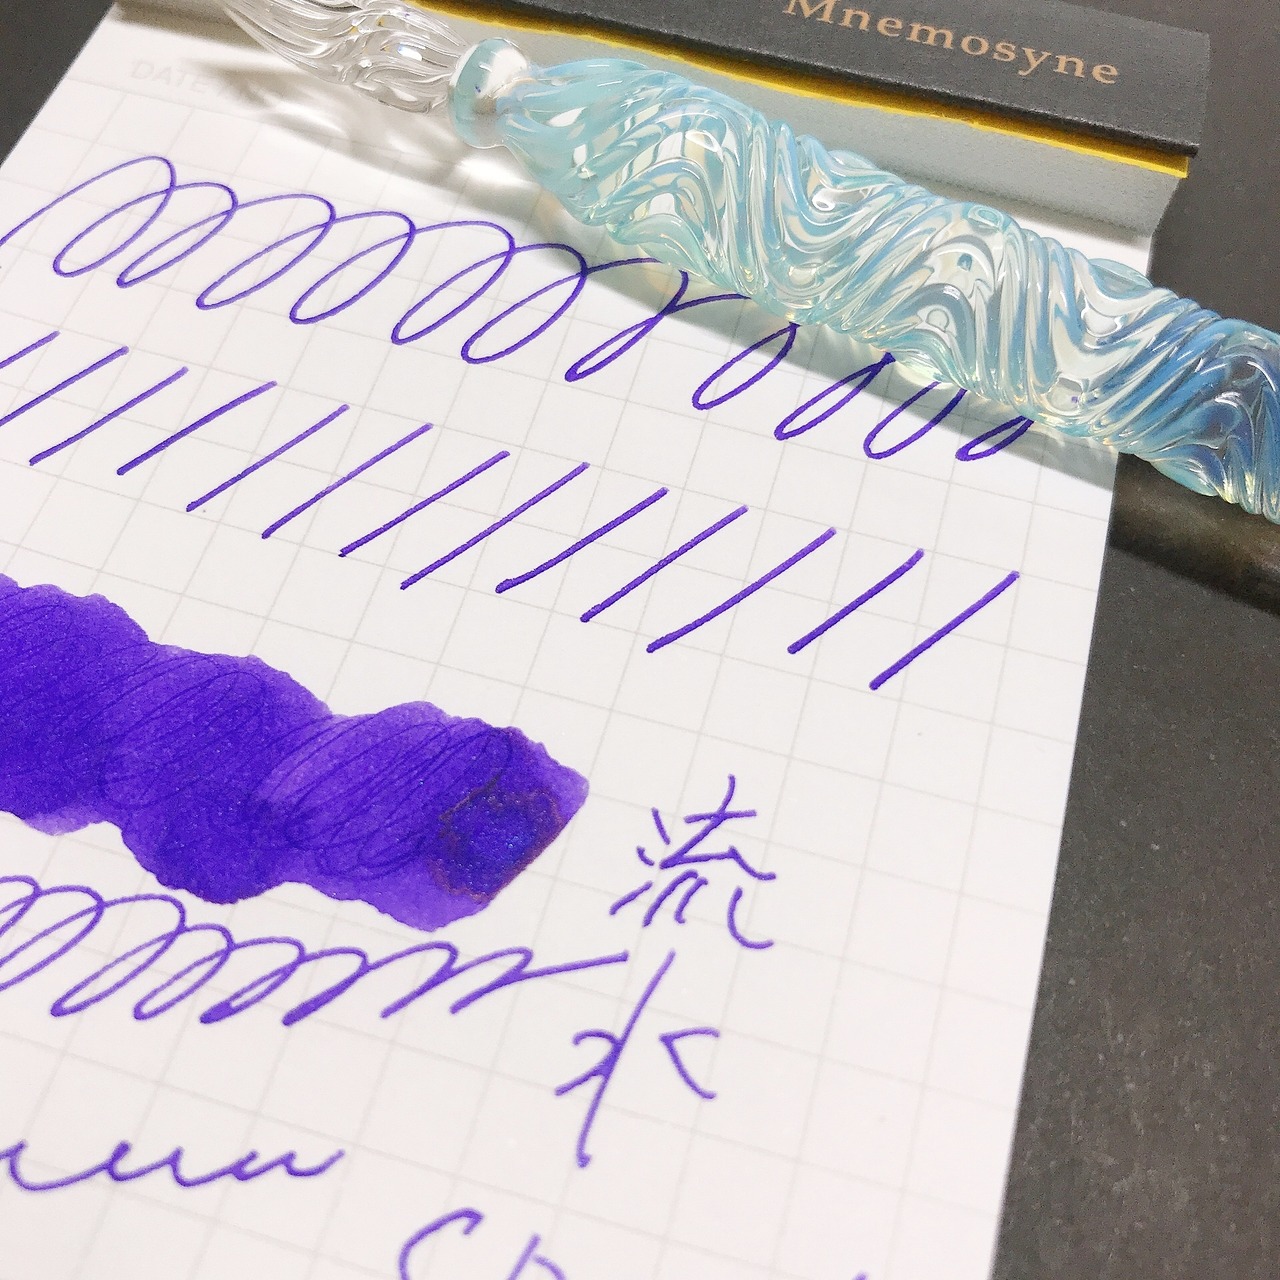 Mnemosyne
DATE
流
水